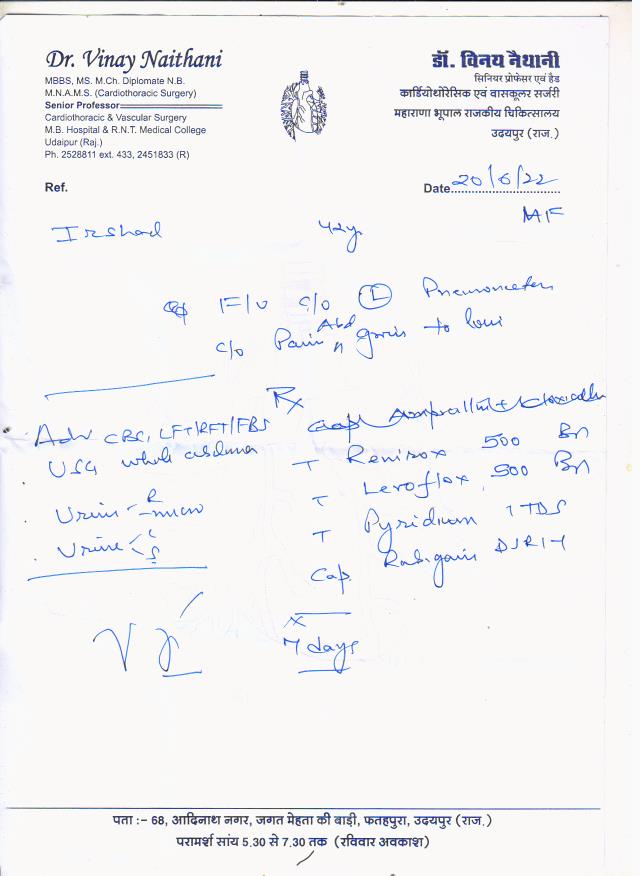 Dr. Vinay Naithani
MBBS, MS. M.Ch. Diplomate N.B.
M.N.A.M.S. (Cardiothoracic Surgery)
Senior Professor
Cardiothoracic & Vascular Surgery
M.B. Hospital & R.N.T. Medical College
Udaipur (Raj.)
Ph. 2528811 ext. 433, 2451833 (R)
डॉ. विनय नैथानी
सिनियर प्रोफेसर एवं हैड
कार्डियोथोरेसिक एवं वासकूलर सर्जरी
महाराणा भूपाल राजकीय चिकित्सालय
उदयपुर (राज.)
Ref.
Date 20/6/22
M/F
Irshad 42y
F/U c/o L
c/o Pain Abd to
Rx
Adv CBC, LFT/RFT/FBS
USG whole
T 500
T Levoflox 500
Urine R micro
T Pyridium 1 TDS
Urine C/S
Cap. DSR
x
7 days
पता :- 68, आदिनाथ नगर, जगत मेहता की बाड़ी, फतहपुरा, उदयपुर (राज.)
परामर्श सांय 5.30 से 7.30 तक (रविवार अवकाश)